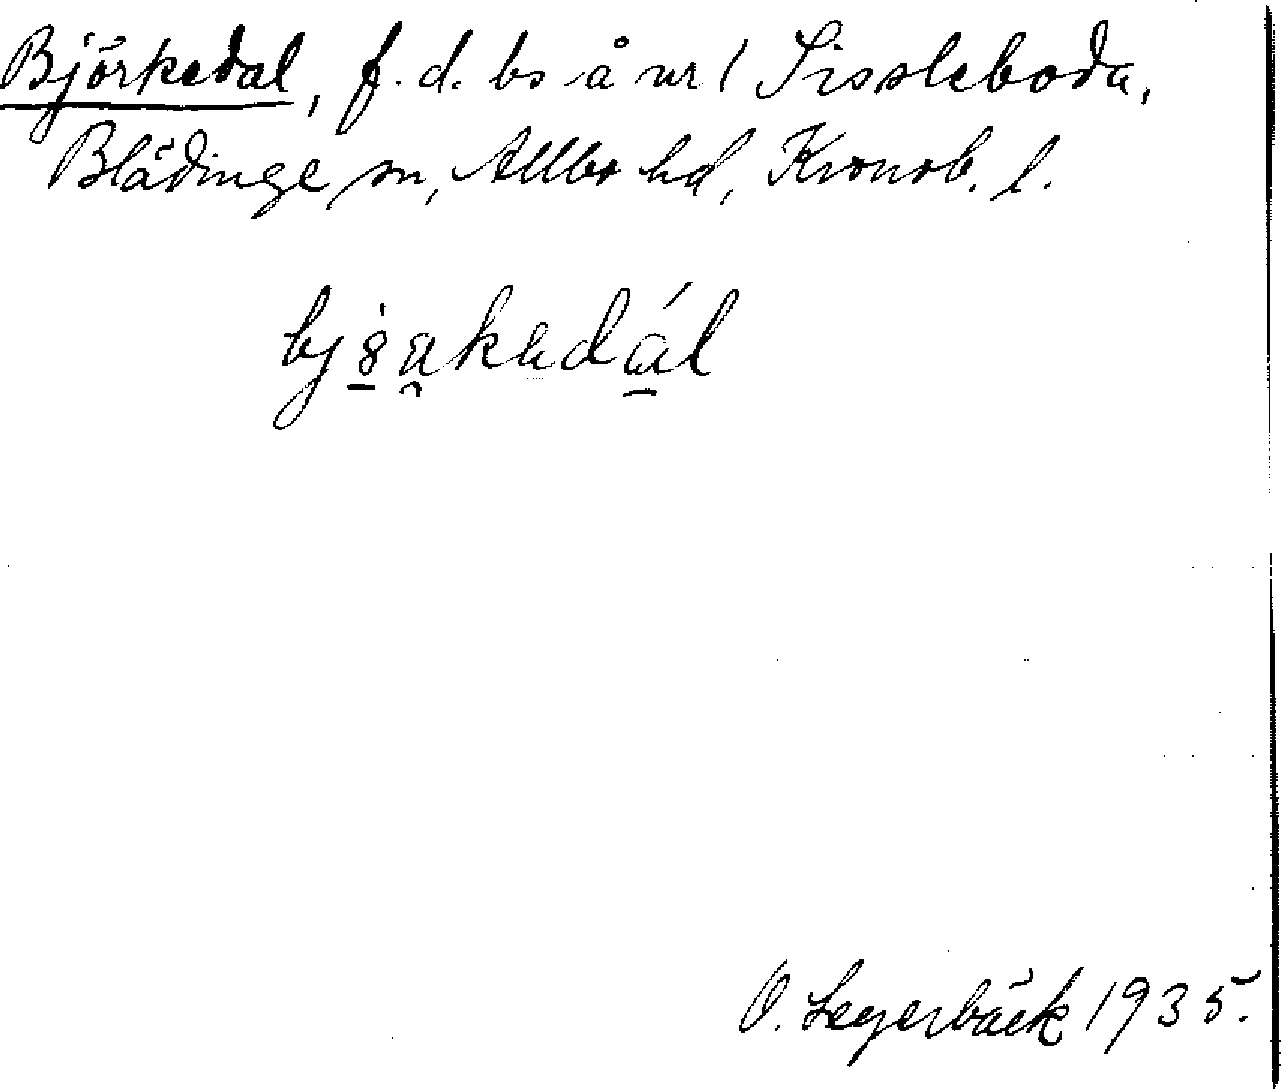 Björkedal, f. d. bs å nr 1 Sissleboda,
Blädinge sn, Allbo hd, Kronob. l.
O. Legerbäck 1935.